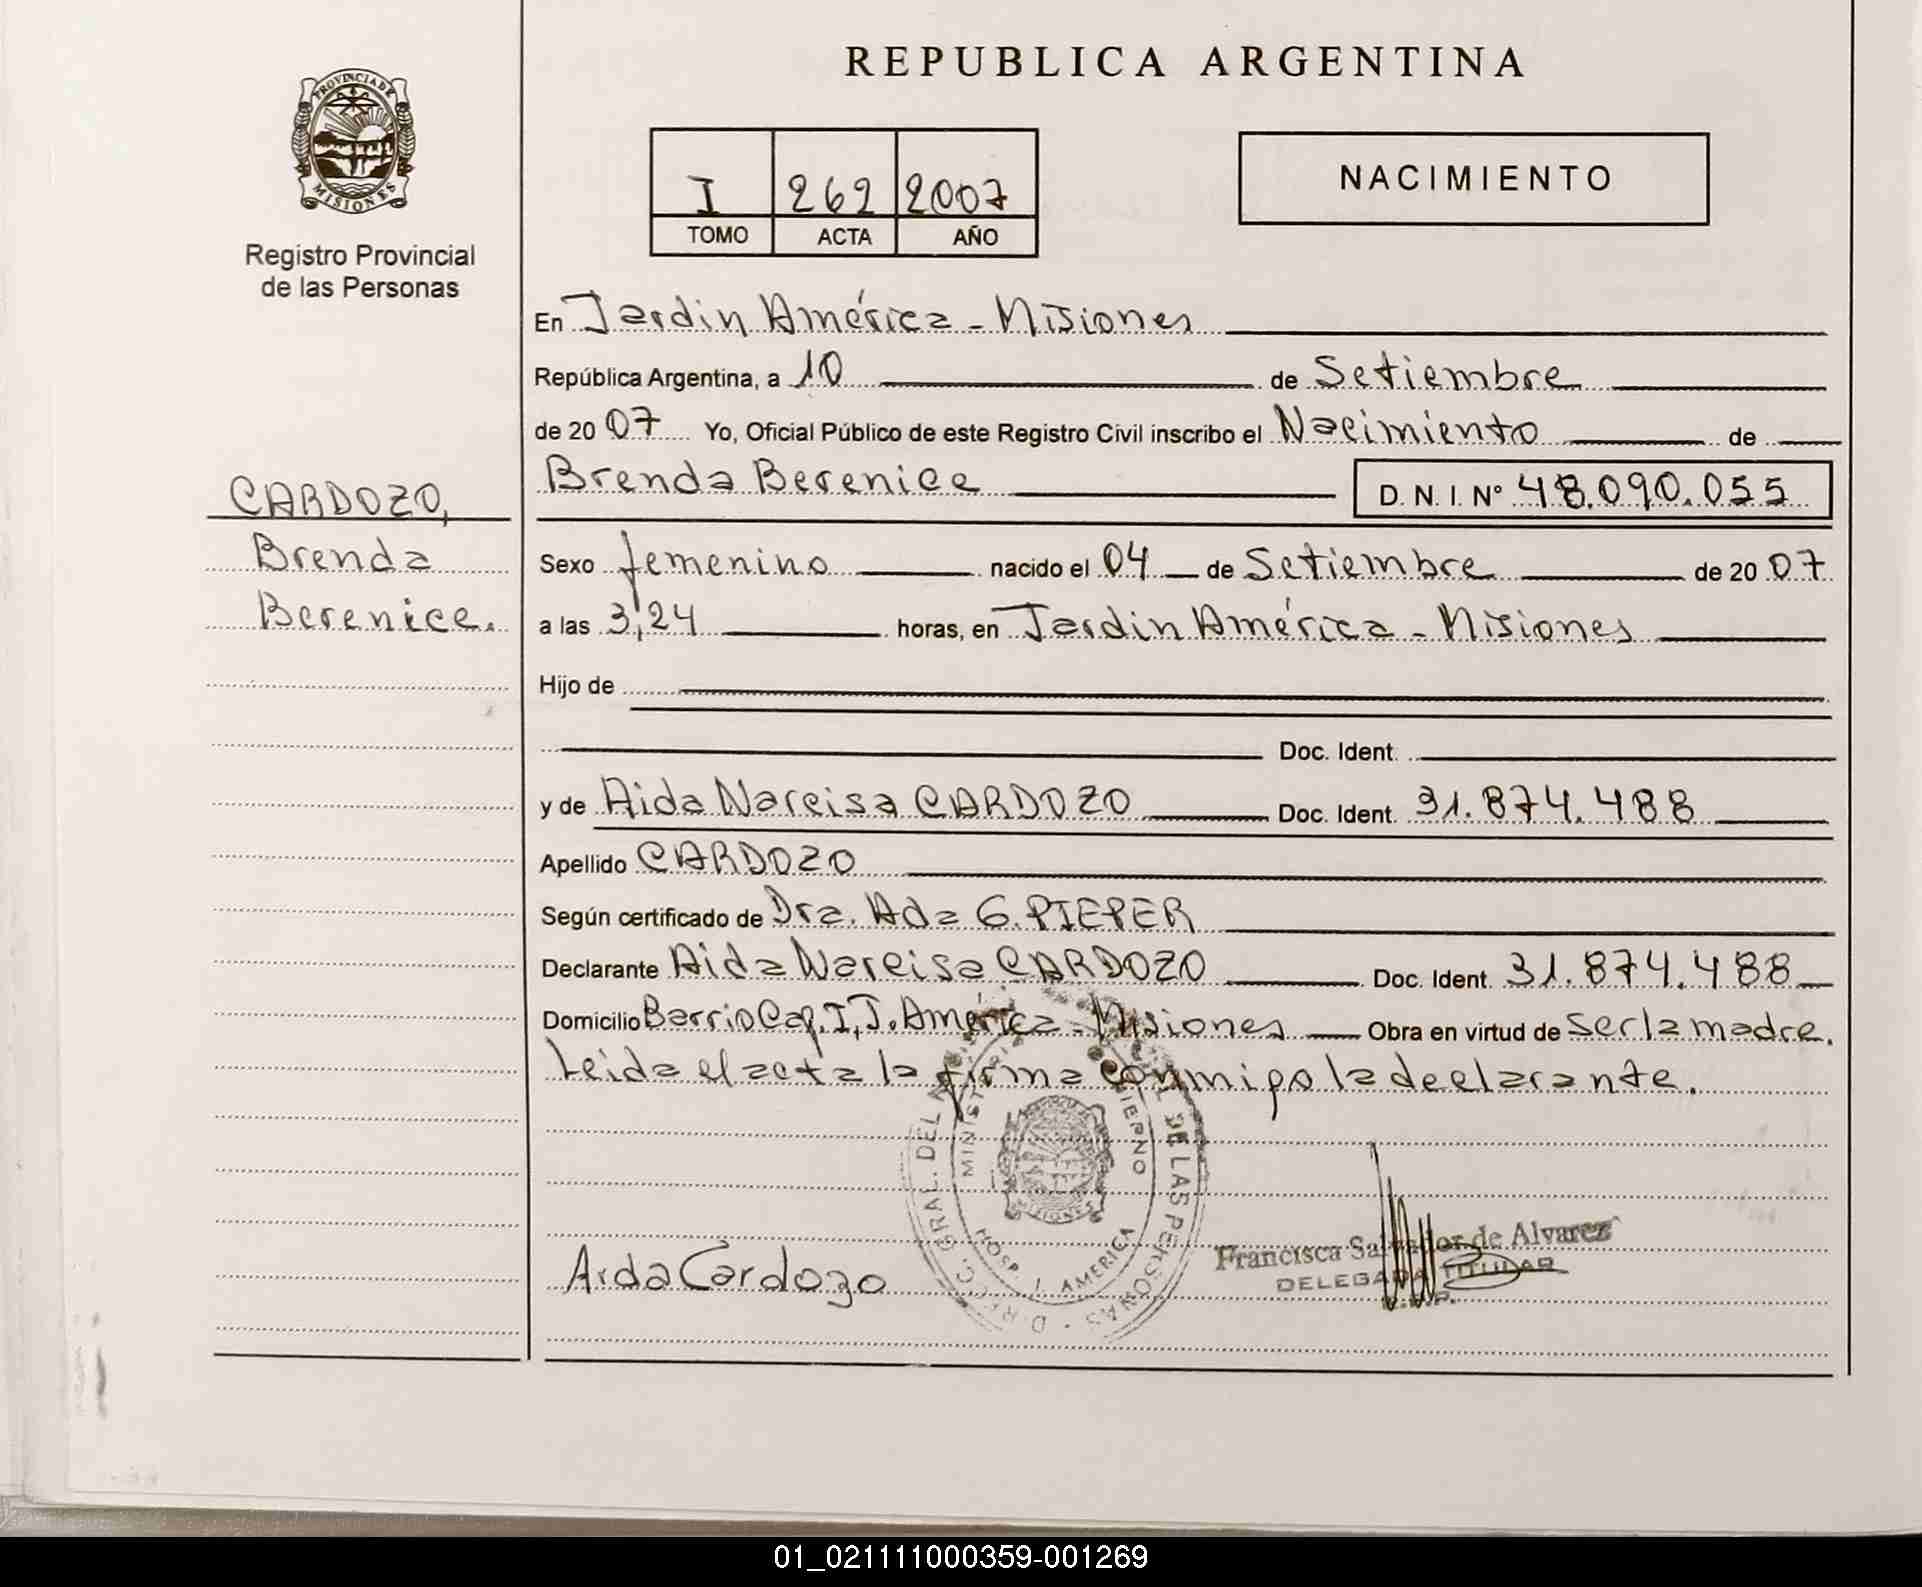 REPUBLICA ARGENTINA
PROVINCIA DE MISIONES
Registro Provincial
de las Personas
I 262 2007
TOMO ACTA AÑO
NACIMIENTO
En Jardin América - Misiones
República Argentina, a 10 de Setiembre
de 20 07 Yo, Oficial Público de este Registro Civil inscribo el Nacimiento de
Brenda Berenice D. N. I. Nº 48.090.055
CARDOZO,
Brenda
Berenice.
Sexo femenino nacido el 04 de Setiembre de 20 07
a las 3,24 horas, en Jardin América - Misiones
Hijo de
Doc. Ident.
y de Aida Narcisa CARDOZO Doc. Ident. 31.874.488
Apellido CARDOZO
Según certificado de Dra. Ada G. PIEPER
Declarante Aida Narcisa CARDOZO Doc. Ident. 31.874.488
Domicilio Barrio Cap. I, J. América - Misiones Obra en virtud de ser la madre.
Leida el acta la firma conmigo la declarante.
DE LAS PERSONAS
MINISTERIO
HOSP. J. AMERICA
MISIONES
Aida Cardozo
Francisca Salvador de Alvarez
DELEGADA TITULAR
01_021111000359-001269